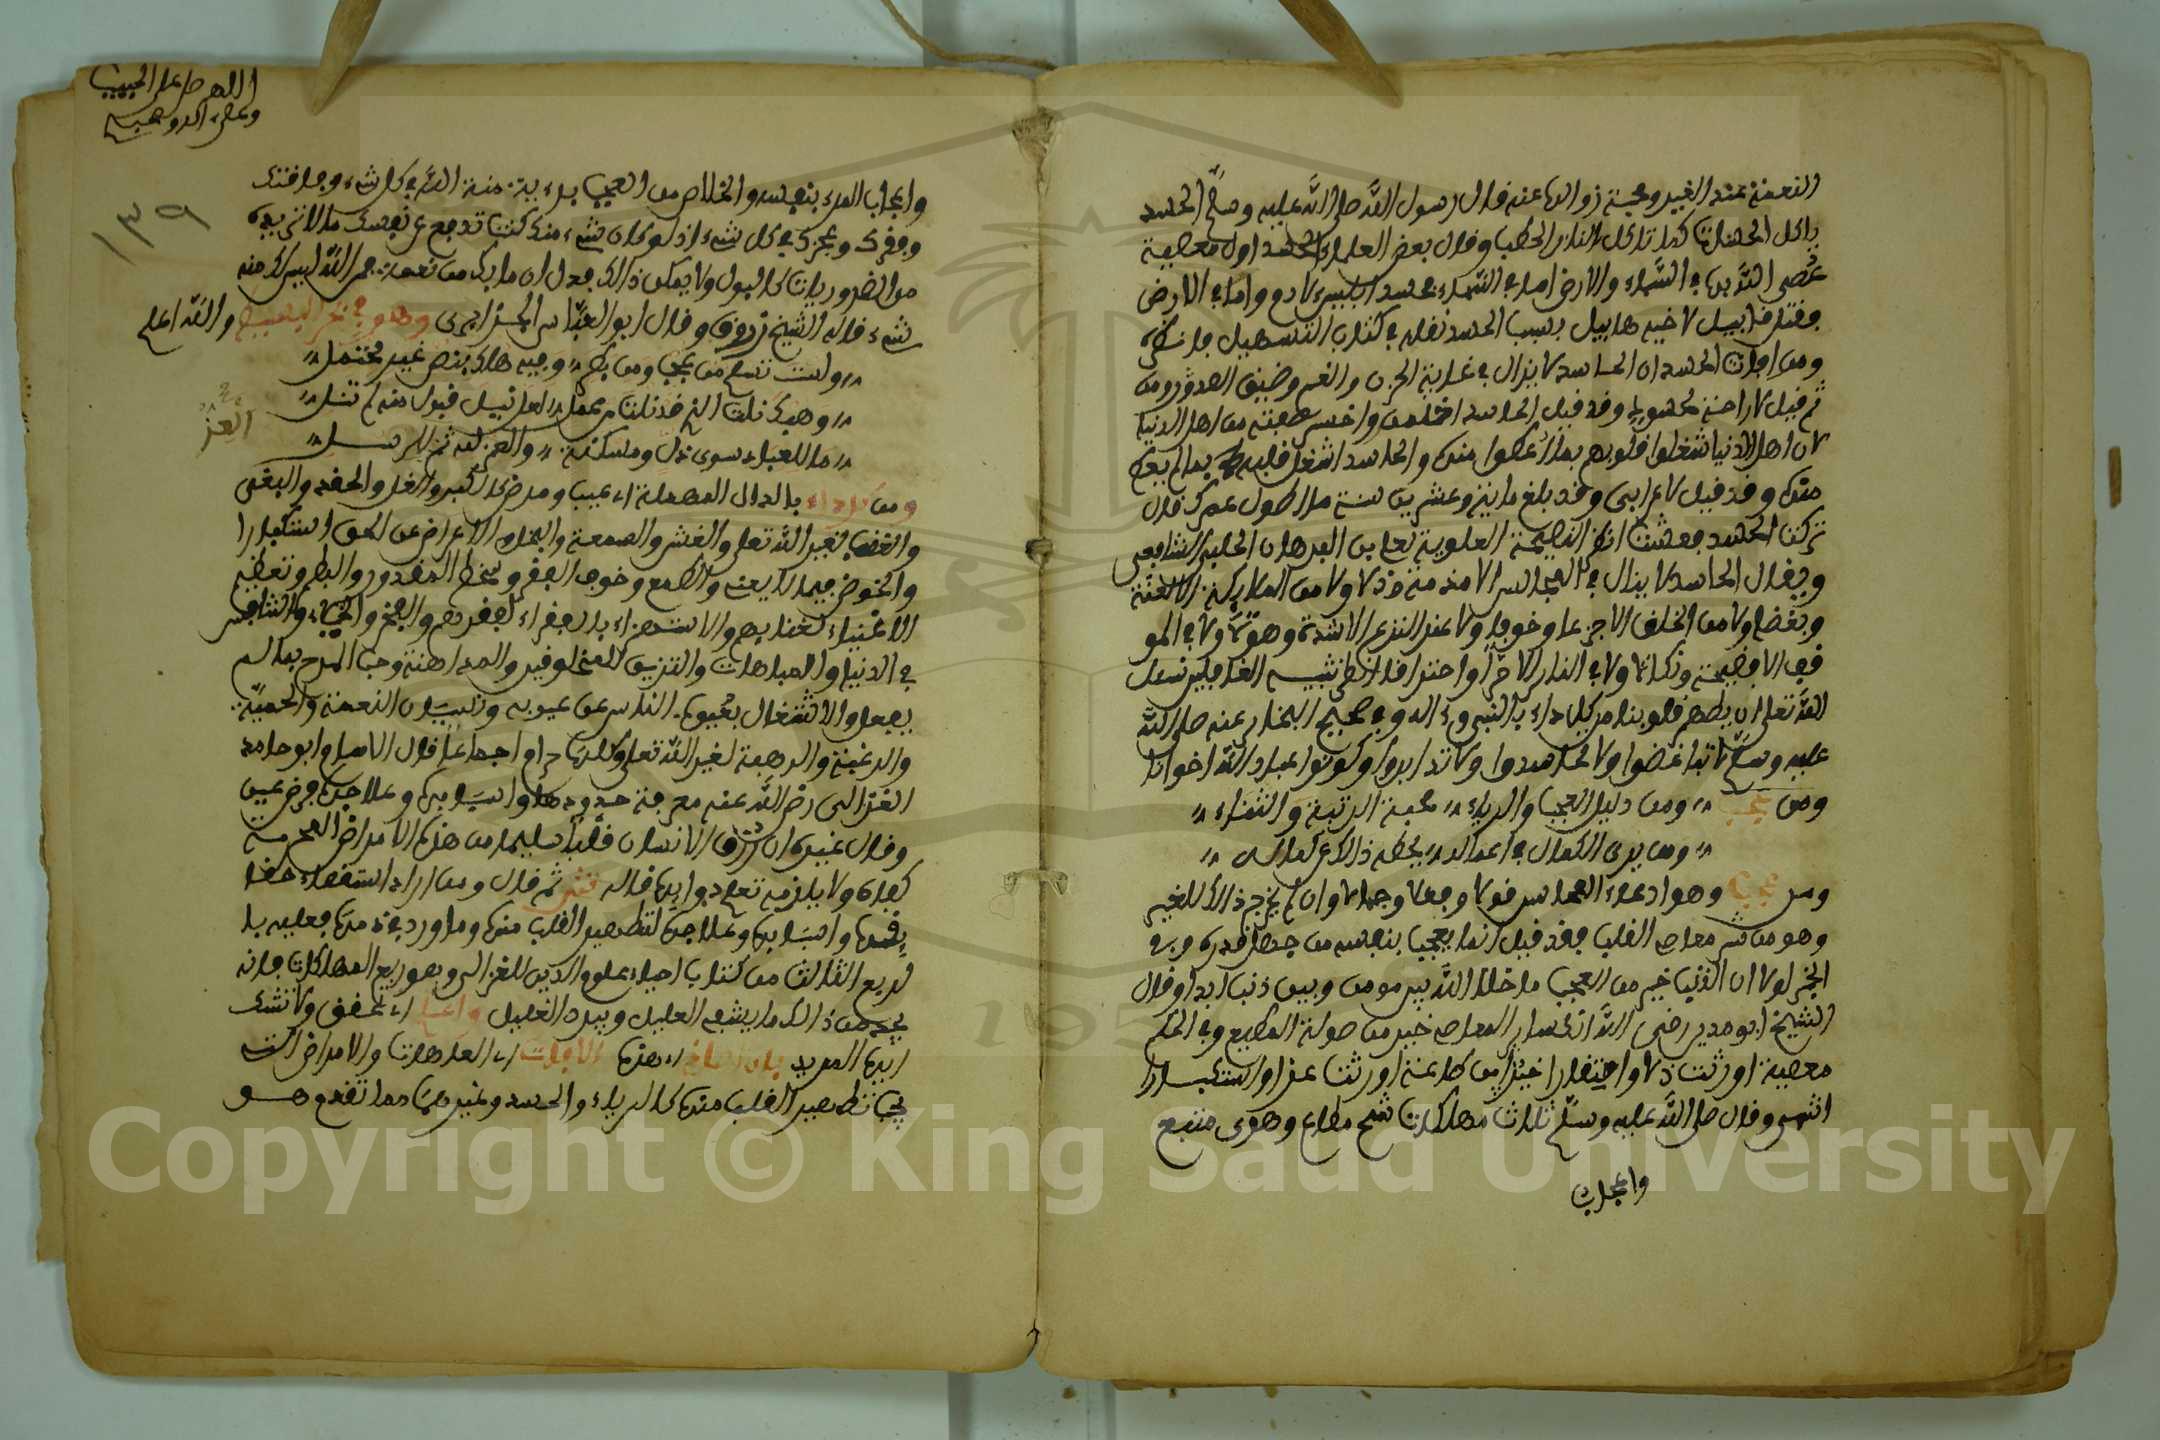 النعمة عند الغير ومحبة زوالها عنه قال رسول الله صلى الله عليه وسلم الحسد
ياكل الحسنات كما تاكل النار الحطب وقال بعض العلماء الحسد اول معصية
عصي الله بها في السماء والارض اما في السماء فحسد ابليس لادم واما في الارض
فقتل قابيل لاخيه هابيل بسبب الحسد نقله في كتاب التسهيل فانظره
ومن افات الحسد ان الحاسد لا يزال في غاية الحزن والغم وضيق الصدور ومن
ثم قيل لا راحة لحسود وقد قيل الحاسد اظلم واخسر صفقة من اهل الدنيا
لان اهل الدنيا شغلوا قلوبهم بما اعطوا منها والحاسد اشغل قلبه بما لم يعط
منها وقد قيل لاعرابي وقد بلغ ماية وعشرين سنة ما اطول عمرك قال
تركت الحسد فعشت انظر النصيحة العلوية لعلي بن البرهان الحلبي الشافعي
ويقال الحاسد لا ينال في المجالس الا مذمة وذلا ولا من الملايكة الا لعنة
وبغضا ولا من الخلق الا جزعا وخوفا ولا عند النزع الا شدة وهولا ولا في المو
قف الا فضيحة ونكالا ولا في النار الا حرا واحتراقا انظر تنبيه الغافلين نسئل
الله تعلى ان يطهر قلوبنا من كل داء بالنبي وءاله وفي صحيح البخاري عنه صلى الله
عليه وسلم لا تباغضوا ولا تحاسدوا ولا تدابروا وكونوا عباد الله اخوانا
ومن عجب ومن دليل العجب والرياء محبة الرتبة والثناء
ومن يرى الكمال في اعماله يحطه ذلك عن كماله
ومن عجب وهو ادعاء المحاسن قولا وفعلا وجمالا وان لم يخرج ذلك للغير
وهو من شر معاصي القلب فقد قيل انما يعجب بنفسه من جهل قدره وفي
الخبر لولا ان الذنب خير من العجب ما خلا الله بين مومن وبين ذنب ابدا وقال
الشيخ ابو مدين رضي الله انكسار العاصي خير من صولة المطيع وفي الحكم
معصية اورثت ذلا وافتقارا خير من طاعة اورثت عزا واستكبارا
انتهى وقال صلى الله عليه وسلم ثلاث مهلكات شح مطاع وهوى متبع
واعجاب
اللهم صل على الحبيب
وعلى ءاله وصحبه
١٣٩
واعجاب المرء بنفسه والخلاص من العجب برءية منة الله في كل شيء وفاقتك
وفقرك وعجزك في كل شيء اذ لو كان شيء منك كنت تدفع عن نفسك ما لا تريده
من الضروريات كالبول ولا يمكن ذلك فدل ان ما بك من نعمة فمن الله ليس لك منه
شيء قاله الشيخ زروق وقال ابو العباس الجزايري والله اعلم
ولست تسلم من عجب ومن بطر وفيه هلك بنص غير محتمل
وهبك نلت الذي قد نلت من عمل لعل نيل قبول منه لم تنل
ما للعباد سوى ذل ومسكنة والعز لله ثم للرسل
العز
ومن كل داء بالدال المهملة اي عيب ومرض كالكبر والغل والحقد والبغي
والغضب لغير الله تعلى والغش والسمعة والبخل والاعراض عن الحق استكبارا
والخوض فيما لا يعني والطمع وخوف الفقر وسخط المقدور والبطر وتعظيم
الاغنياء لغناهم والاستهزاء بالفقراء لفقرهم والفخر والخيلاء والتنافس
في الدنيا والمباهات والتزين للمخلوقين والمداهنة وحب المدح بما لم
يفعل والاشتغال بعيوب الناس عن عيوبه ونسيان النعمة والحمية
والرغبة والرهبة لغير الله تعلى وكلها حرام اجماعا قال الامام ابو حامد
الغزالي رضي الله عنه معرفة حدودها واسبابها وعلاجها فرض عين
وقال غيره ان رزق الانسان قلبا سليما من هذه الامراض المحرمة
كفاه ولا يلزمه تعلم دوايها قاله ثم قال ومن اراد استقصاء
واسبابها وعلاجها لتطهير القلب منها وما ورد في ذمها فعليه با
لربع الثالث من كتاب احياء علوم الدين للغزالي وهو ربع المهلكات فانه
يجد من ذلك ما يشفي العليل ويبرد الغليل واعلم اي تحقق ولا تشك
ايها المريد بان اصل هذه الافات اي العاهات والامراض التي
يجب تطهير القلب منها كالرياء والحسد وغيرهما مما تقدم هو
Copyright © King Saud University